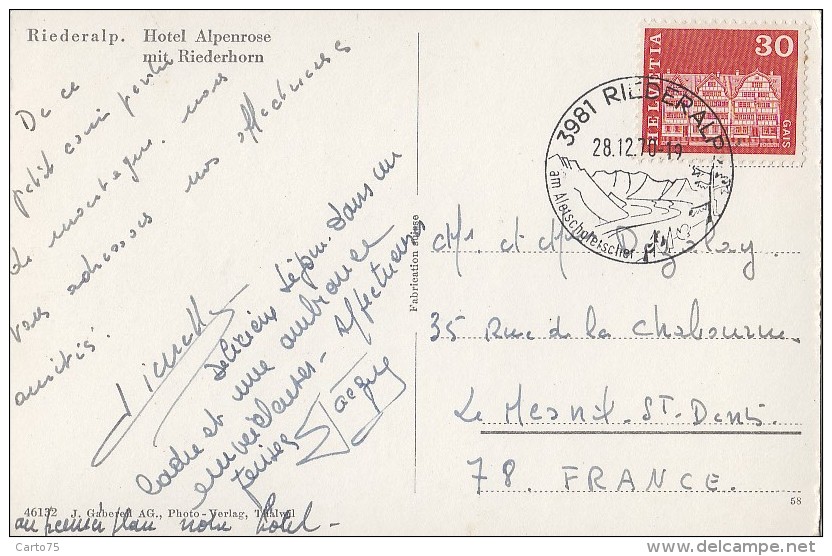 Riederalp. Hotel Alpenrose
mit Riederhorn
De ce
petit coin perdu
de montagne. nous
vous adressons nos affectueuses
amitiés.
Délicieux séjour. Dans un
Cadre et une ambiance
affectueuses
au premier plan notre hôtel -
46132 J. Gaberell AG., Photo-Verlag, Thalwil
Fabrication suisse
HELVETIA
30
GAIS
3981 RIEDERALP
28.12.70-19
am Aletschgletscher
Mr. et Me
35 Rue de la Chabourne.
Le Mesnil-St-Denis
78. FRANCE.
58
Carto75
delcampe.net